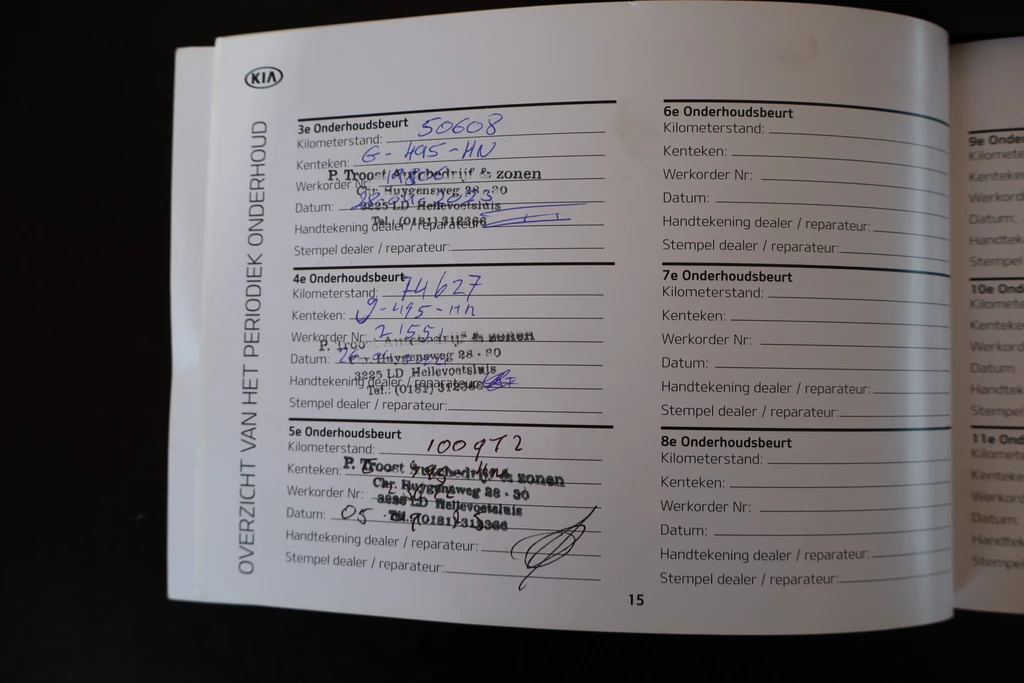 KIA
OVERZICHT VAN HET PERIODIEK ONDERHOUD
3e Onderhoudsbeurt
Kilometerstand: 50608
Kenteken: G-495-HN
P. Troost Autobedrijf & zonen
Werkorder Nr:
Chr. Huygensweg 28 - 30
Datum:
3225 LD Hellevoetsluis
Tel.: (0181) 312366
Handtekening dealer / reparateur:
Stempel dealer / reparateur:
4e Onderhoudsbeurt
Kilometerstand: 74627
Kenteken: g-495-hn
Werkorder Nr: 2155
P. Troost Autobedrijf & zonen
Datum: 26
Chr. Huygensweg 28 - 30
3225 LD Hellevoetsluis
Handtekening dealer / reparateur:
Tel.: (0181) 312366
Stempel dealer / reparateur:
5e Onderhoudsbeurt
Kilometerstand: 100972
Kenteken:
P. Troost Autobedrijf & zonen
Chr. Huygensweg 28 - 30
Werkorder Nr:
3225 LD Hellevoetsluis
Datum: 05
Tel.: (0181) 312366
Handtekening dealer / reparateur:
Stempel dealer / reparateur:
6e Onderhoudsbeurt
Kilometerstand:
Kenteken:
Werkorder Nr:
Datum:
Handtekening dealer / reparateur:
Stempel dealer / reparateur:
7e Onderhoudsbeurt
Kilometerstand:
Kenteken:
Werkorder Nr:
Datum:
Handtekening dealer / reparateur:
Stempel dealer / reparateur:
8e Onderhoudsbeurt
Kilometerstand:
Kenteken:
Werkorder Nr:
Datum:
Handtekening dealer / reparateur:
Stempel dealer / reparateur:
15
9e Onde
Kilomete
Kenteken
Werkord
Datum:
Handtek
Stempel
10e Onde
Kilomete
Kenteken
Werkord
Datum:
Handtek
Stempel
11e Onde
Kilomete
Kenteken
Werkord
Datum:
Handtek
Stempel